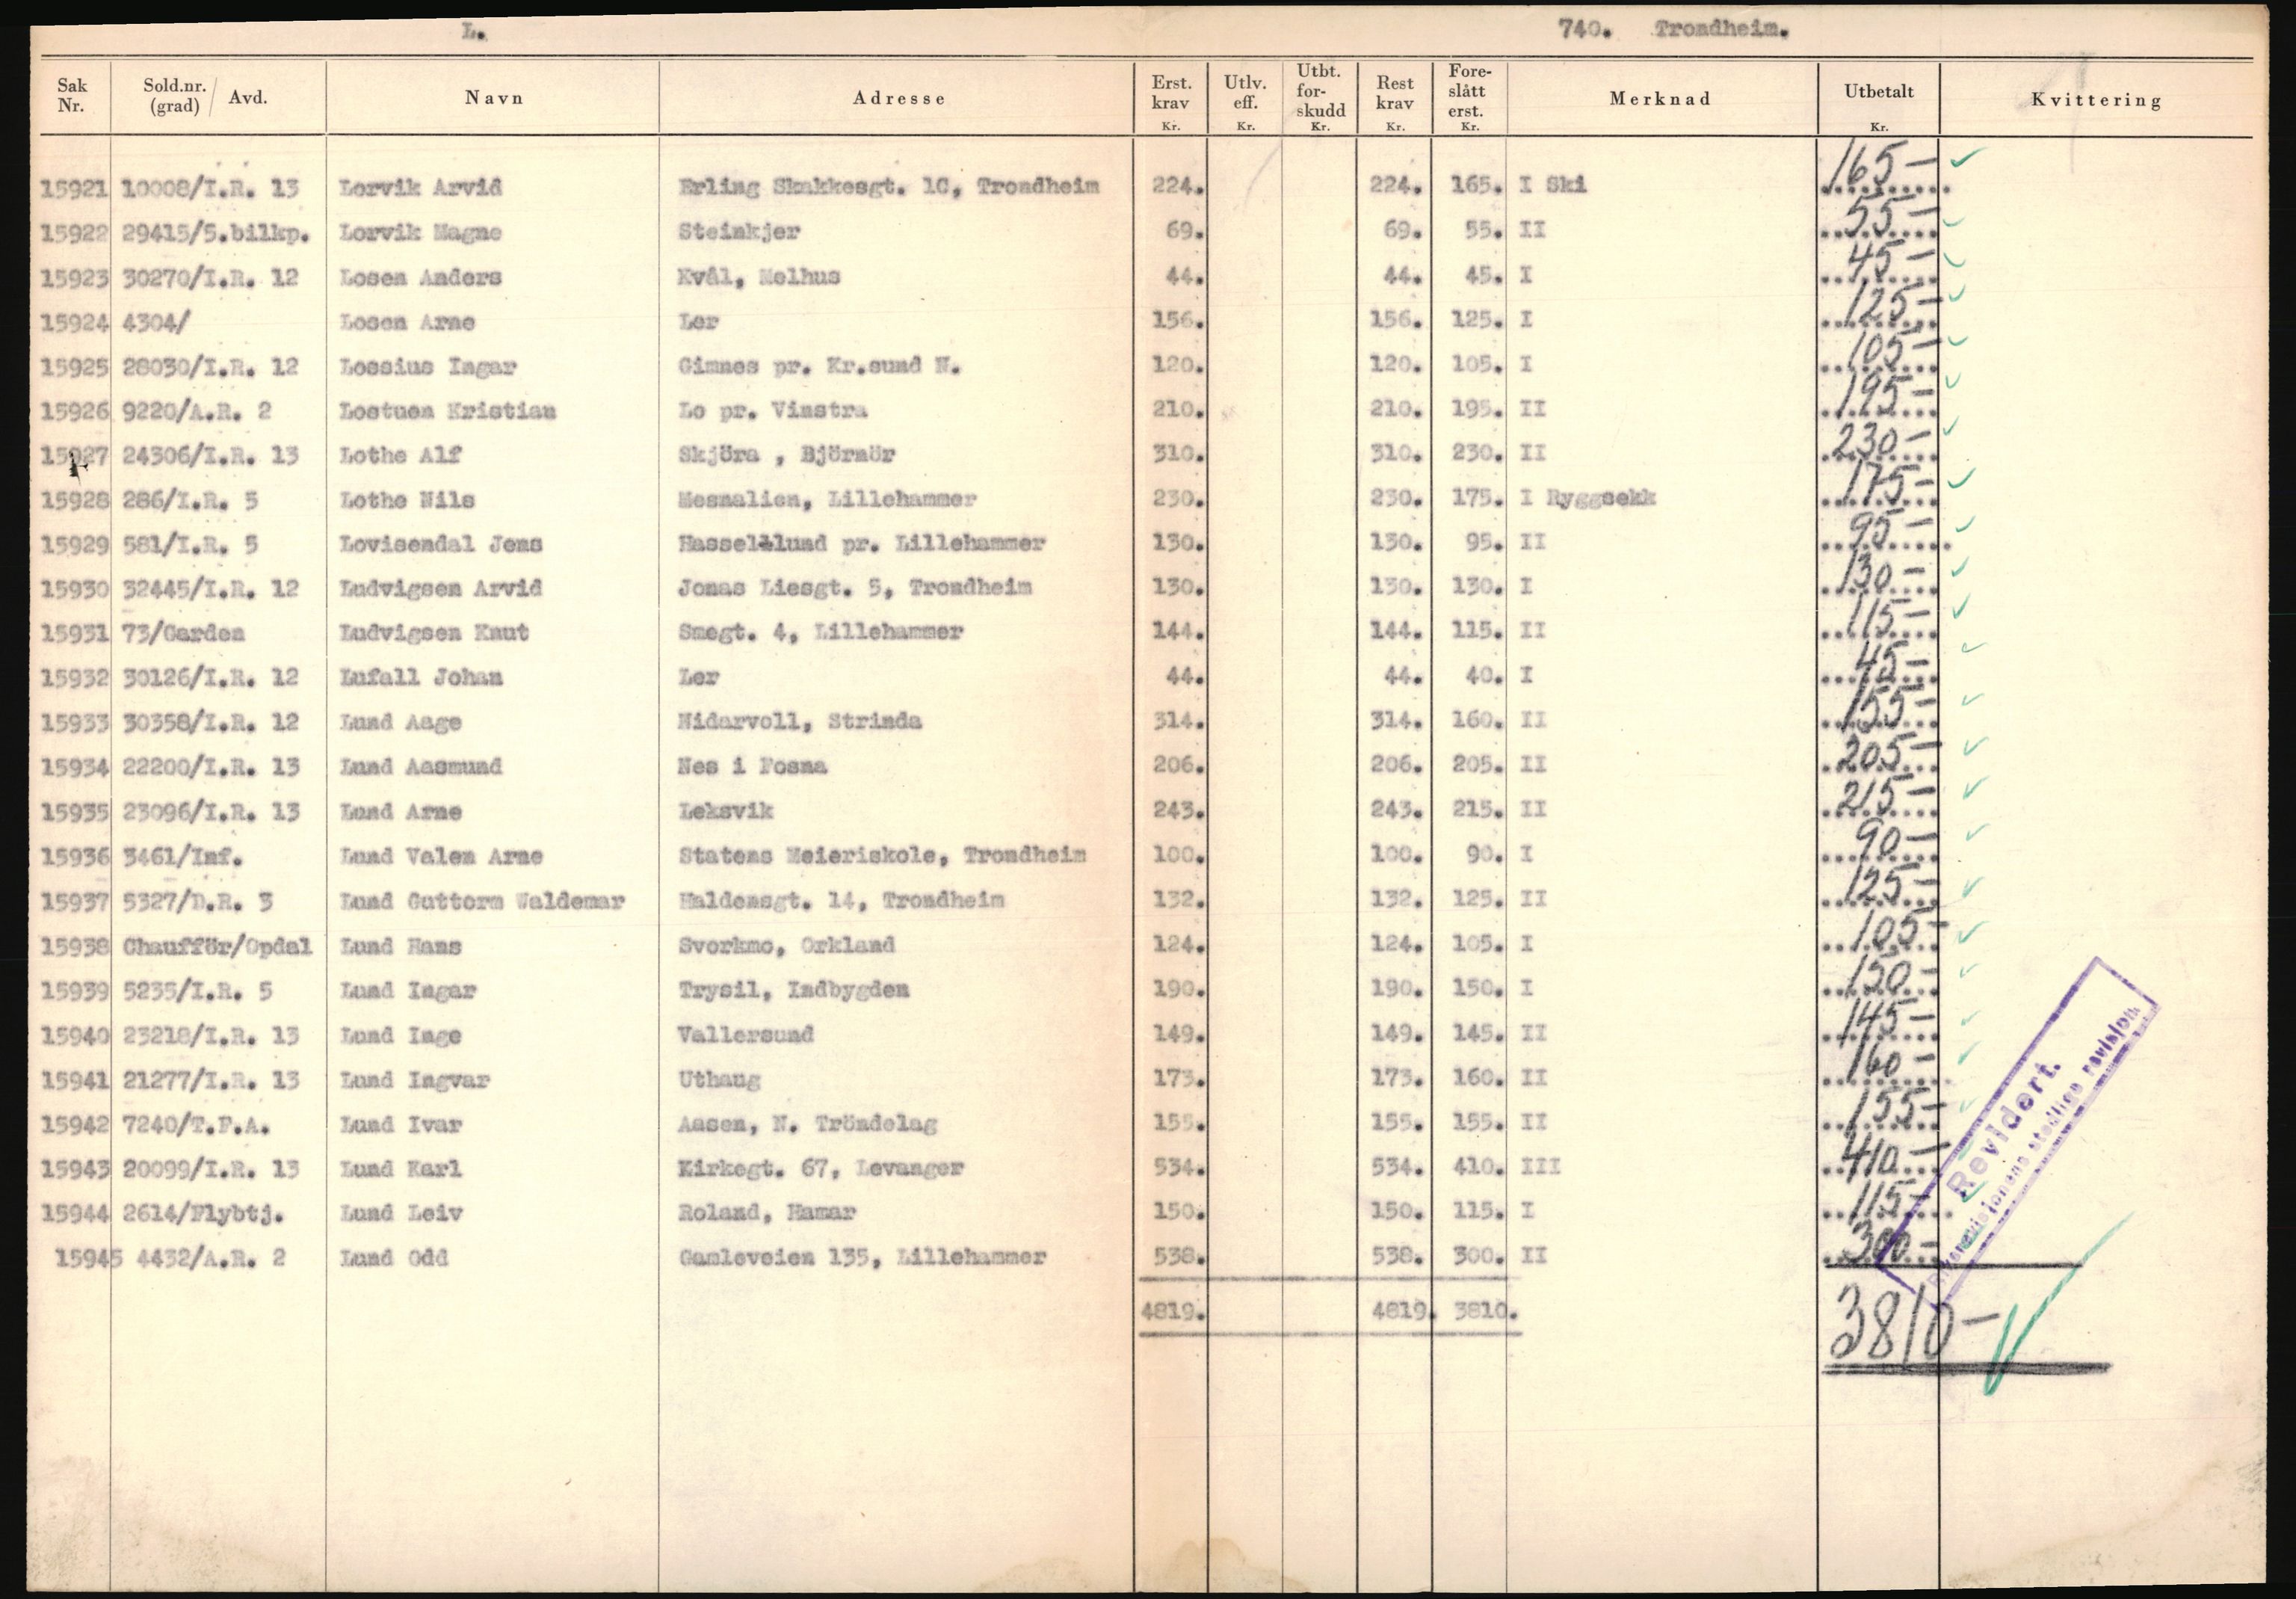 L. 740. Trondheim.
Sak Nr. Sold.nr. (grad) / Avd. Navn Adresse Erst. krav Kr. Utlv. eff. Kr. Utbt. for- skudd Kr. Rest krav Kr. Fore- slått erst. Kr. Merknad Utbetalt Kr. Kvittering
15921 10008/I.R. 13 Lorvik Arvid Erling Skakkesgt. 10, Trondheim 224. 224. 165. I Ski 165-
15922 29415/5.bilkp. Lorvik Magne Steinkjer 69. 69. 55. II 55-
15923 30270/I.R. 12 Losen Anders Kvål, Melhus 44. 44. 45. I 45-
15924 4304/ Losen Arne Ler 156. 156. 125. I 125-
15925 28030/I.R. 12 Lossius Ingar Gimnes pr. Kr.sund N. 120. 120. 105. I 105-
15926 9220/A.R. 2 Lostuen Kristian Lo pr. Vinstra 210. 210. 195. II 195-
15927 24306/I.R. 13 Lothe Alf Skjöra , Björnör 310. 310. 230. II 230-
15928 286/I.R. 5 Lothe Nils Mesnalien, Lillehammer 230. 230. 175. I Ryggsekk 175-
15929 581/I.R. 5 Lovisendal Jens Hassellund pr. Lillehammer 130. 130. 95. II 95-
15930 32445/I.R. 12 Ludvigsen Arvid Jonas Liesgt. 5, Trondheim 130. 130. 130. I 130-
15931 73/Garden Ludvigsen Knut Smegt. 4, Lillehammer 144. 144. 115. II 115-
15932 30126/I.R. 12 Lufall Johan Ler 44. 44. 40. I 45-
15933 30358/I.R. 12 Lund Aage Nidarvoll, Strinda 314. 314. 160. II 155-
15934 22200/I.R. 13 Lund Aasmund Nes i Fosna 206. 206. 205. II 205-
15935 23096/I.R. 13 Lund Arne Leksvik 243. 243. 215. II 215-
15936 3461/Inf. Lund Valen Arne Statens Meieriskole, Trondheim 100. 100. 90. I 90-
15937 5327/D.R. 3 Lund Guttorm Waldemar Haldensgt. 14, Trondheim 132. 132. 125. II 125-
15938 Chaufför/Opdal Lund Hans Svorkmo, Orkland 124. 124. 105. I 105-
15939 5235/I.R. 5 Lund Ingar Trysil, Indbygden 190. 190. 150. I 150-
15940 23218/I.R. 13 Lund Inge Vallersund 149. 149. 145. II 145-
15941 21277/I.R. 13 Lund Ingvar Uthaug 173. 173. 160. II 160-
15942 7240/T.F.A. Lund Ivar Aasen, N. Tröndelag 155. 155. 155. II 155-
15943 20099/I.R. 13 Lund Karl Kirkegt. 67, Levanger 534. 534. 410. III 410-
15944 2614/Flybtj. Lund Leiv Roland, Hamar 150. 150. 115. I 115-
15945 4432/A.R. 2 Lund Odd Gamleveien 135, Lillehammer 538. 538. 300. II 300-
4819. 4819. 3810. 3810-
Revidert.
stedlige revisjon.